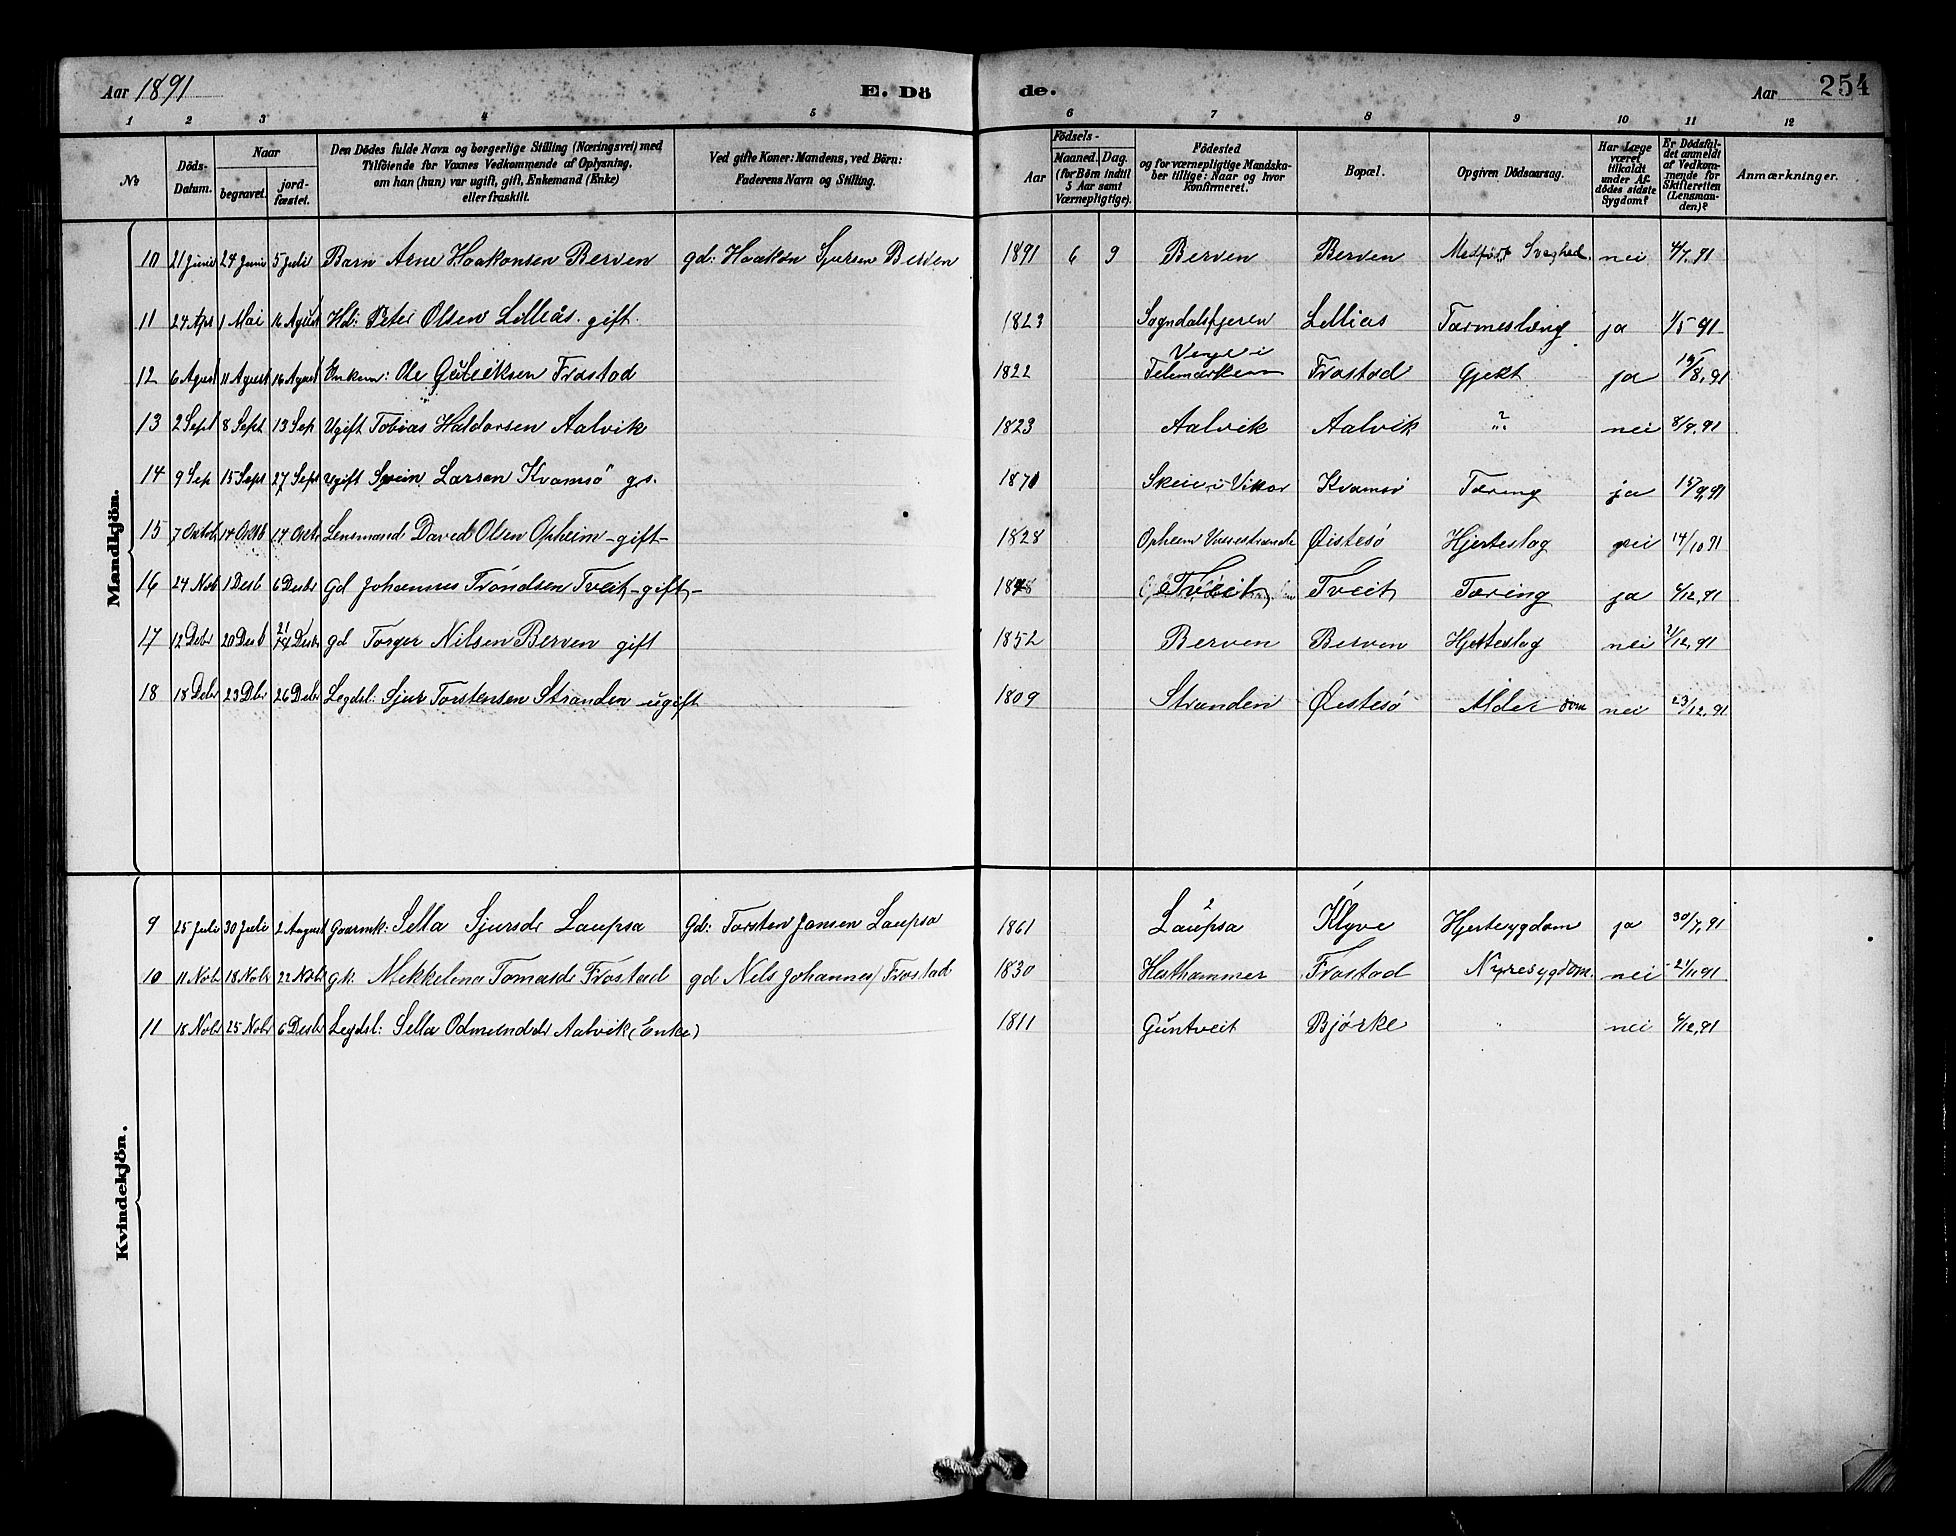 Aar 1891 E. Dö de. Aar 254
1 2 3 4 5 6 7 8 9 10 11 12
№ Döds-Datum. Naar begravet. jord-fæstet. Den Dödes fulde Navn og borgerlige Stilling (Næringsvei) med Tilföiende for Voxnes Vedkommende af Oplysning, om han (hun) var ugift, gift, Enkemand (Enke) eller fraskilt. Ved gifte Koner: Mandens, ved Börn: Faderens Navn og Stilling. Aar Födsels- Maaned. Dag. (for Börn indtil 5 Aar samt Værnepligtige). Födested og for værnepligtige Mandskaber tillige: Naar og hvor Konfirmeret. Bopæl. Opgiven Dödsaarsag. Har Læge været tilkaldt under Afdödes sidste Sygdom? Er Dödsfaldet anmeldt af Vedkommende for Skifteretten (Lensmanden)? Anmærkninger.
Mandkjön.
10 21 Juni 24 Juni 5 Juli Barn Arne Haakonsen Berven gd: Haakon Sjursen Berven 1891 6 9 Berven Berven Medført Svaghed. nei 4/7. 91
11 24 Apr 1 Mai 16 Agust Hd: Peter Olsen Lilleås. gift. 1823 Sogndalsfjeren Lillias Tarmeslæng ja 1/5 91
12 6 Agust 11 Agust 16 Agust Enkem: Ole Guleiksen Frostad 1822 Vinje i Telemarken Frostad Gjekt ja 10/8. 91
13 2 Sept 8 Sept 13 Sep Ugift Tobias Haldorsen Aalvik 1823 Aalvik Aalvik ? nei 8/9. 91
14 9 Sep 15 Sept 27 Sept Ugift Svein Larsen Kvamsö gs. 1871 Skeie i Vikør Kvamsø Tæring ja 15/9 91
15 7 Oktob 14 Oktb 14 Oktb Lensmand David Olsen Opheim - gift - 1828 Opheim Øistesø Hjerteslag nei 14/10 91
16 24 Nob 1 Desb 6 Desbr Gd Johannes Tróndsen Tveit - gift - 1848 Tveit Tveit Tæring ja 6/12. 91
17 12 Debr 20 Desb 21 Desbr gd Torger Nilsen Berven gift 1852 Berven Berven Hjerteslag nei 21/12. 91
18 18 Debr 23 Dbr 26 Debr Legdsl: Sjur Torstensen Stranden ugift 1809 Stranden Øistesø Alderdom nei 23/12. 91
Kvindekjön.
9 25 Juli 30 Juli 2 August Gaarmk: Sella Sjursdr Laupsa Gd: Torsten Jansen Laupsa 1861 Laupsa Klyve Hjertesygdom ja 30/7. 91
10 11 Nobr 18 Nobr 22 Nobr gk: Mekkelena Tomasdr Frostad gd Nils Johannes/ Frostad 1830 Hathammer Frostad Nyresygdom. nei 21/11 91
11 18 Nobr 25 Nobr 6 Desbr Legdsl: Sella Odmundsdr Aalvik (Enke) 1811 Guntveit Bjórke " nei 6/12. 91